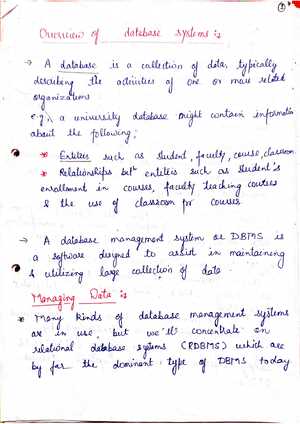 1
Overview of database systems :-
→ A database is a collection of data, typically
describing the activities of one or more related
organizations
e.g. a university database might contain information
about the following:
* Entities such as student, faculty, course, classroom
* Relationships betn entities such as student's
enrollment in courses, faculty teaching courses
& the use of classroom for courses
→ A database management system or DBMS is
a software designed to assist in maintaining
& utilizing large collection of data
Managing Data :-
* Many kinds of database management systems
are in use but we'll concentrate on
relational database systems (RDBMS) which are
by far the dominant type of DBMS today